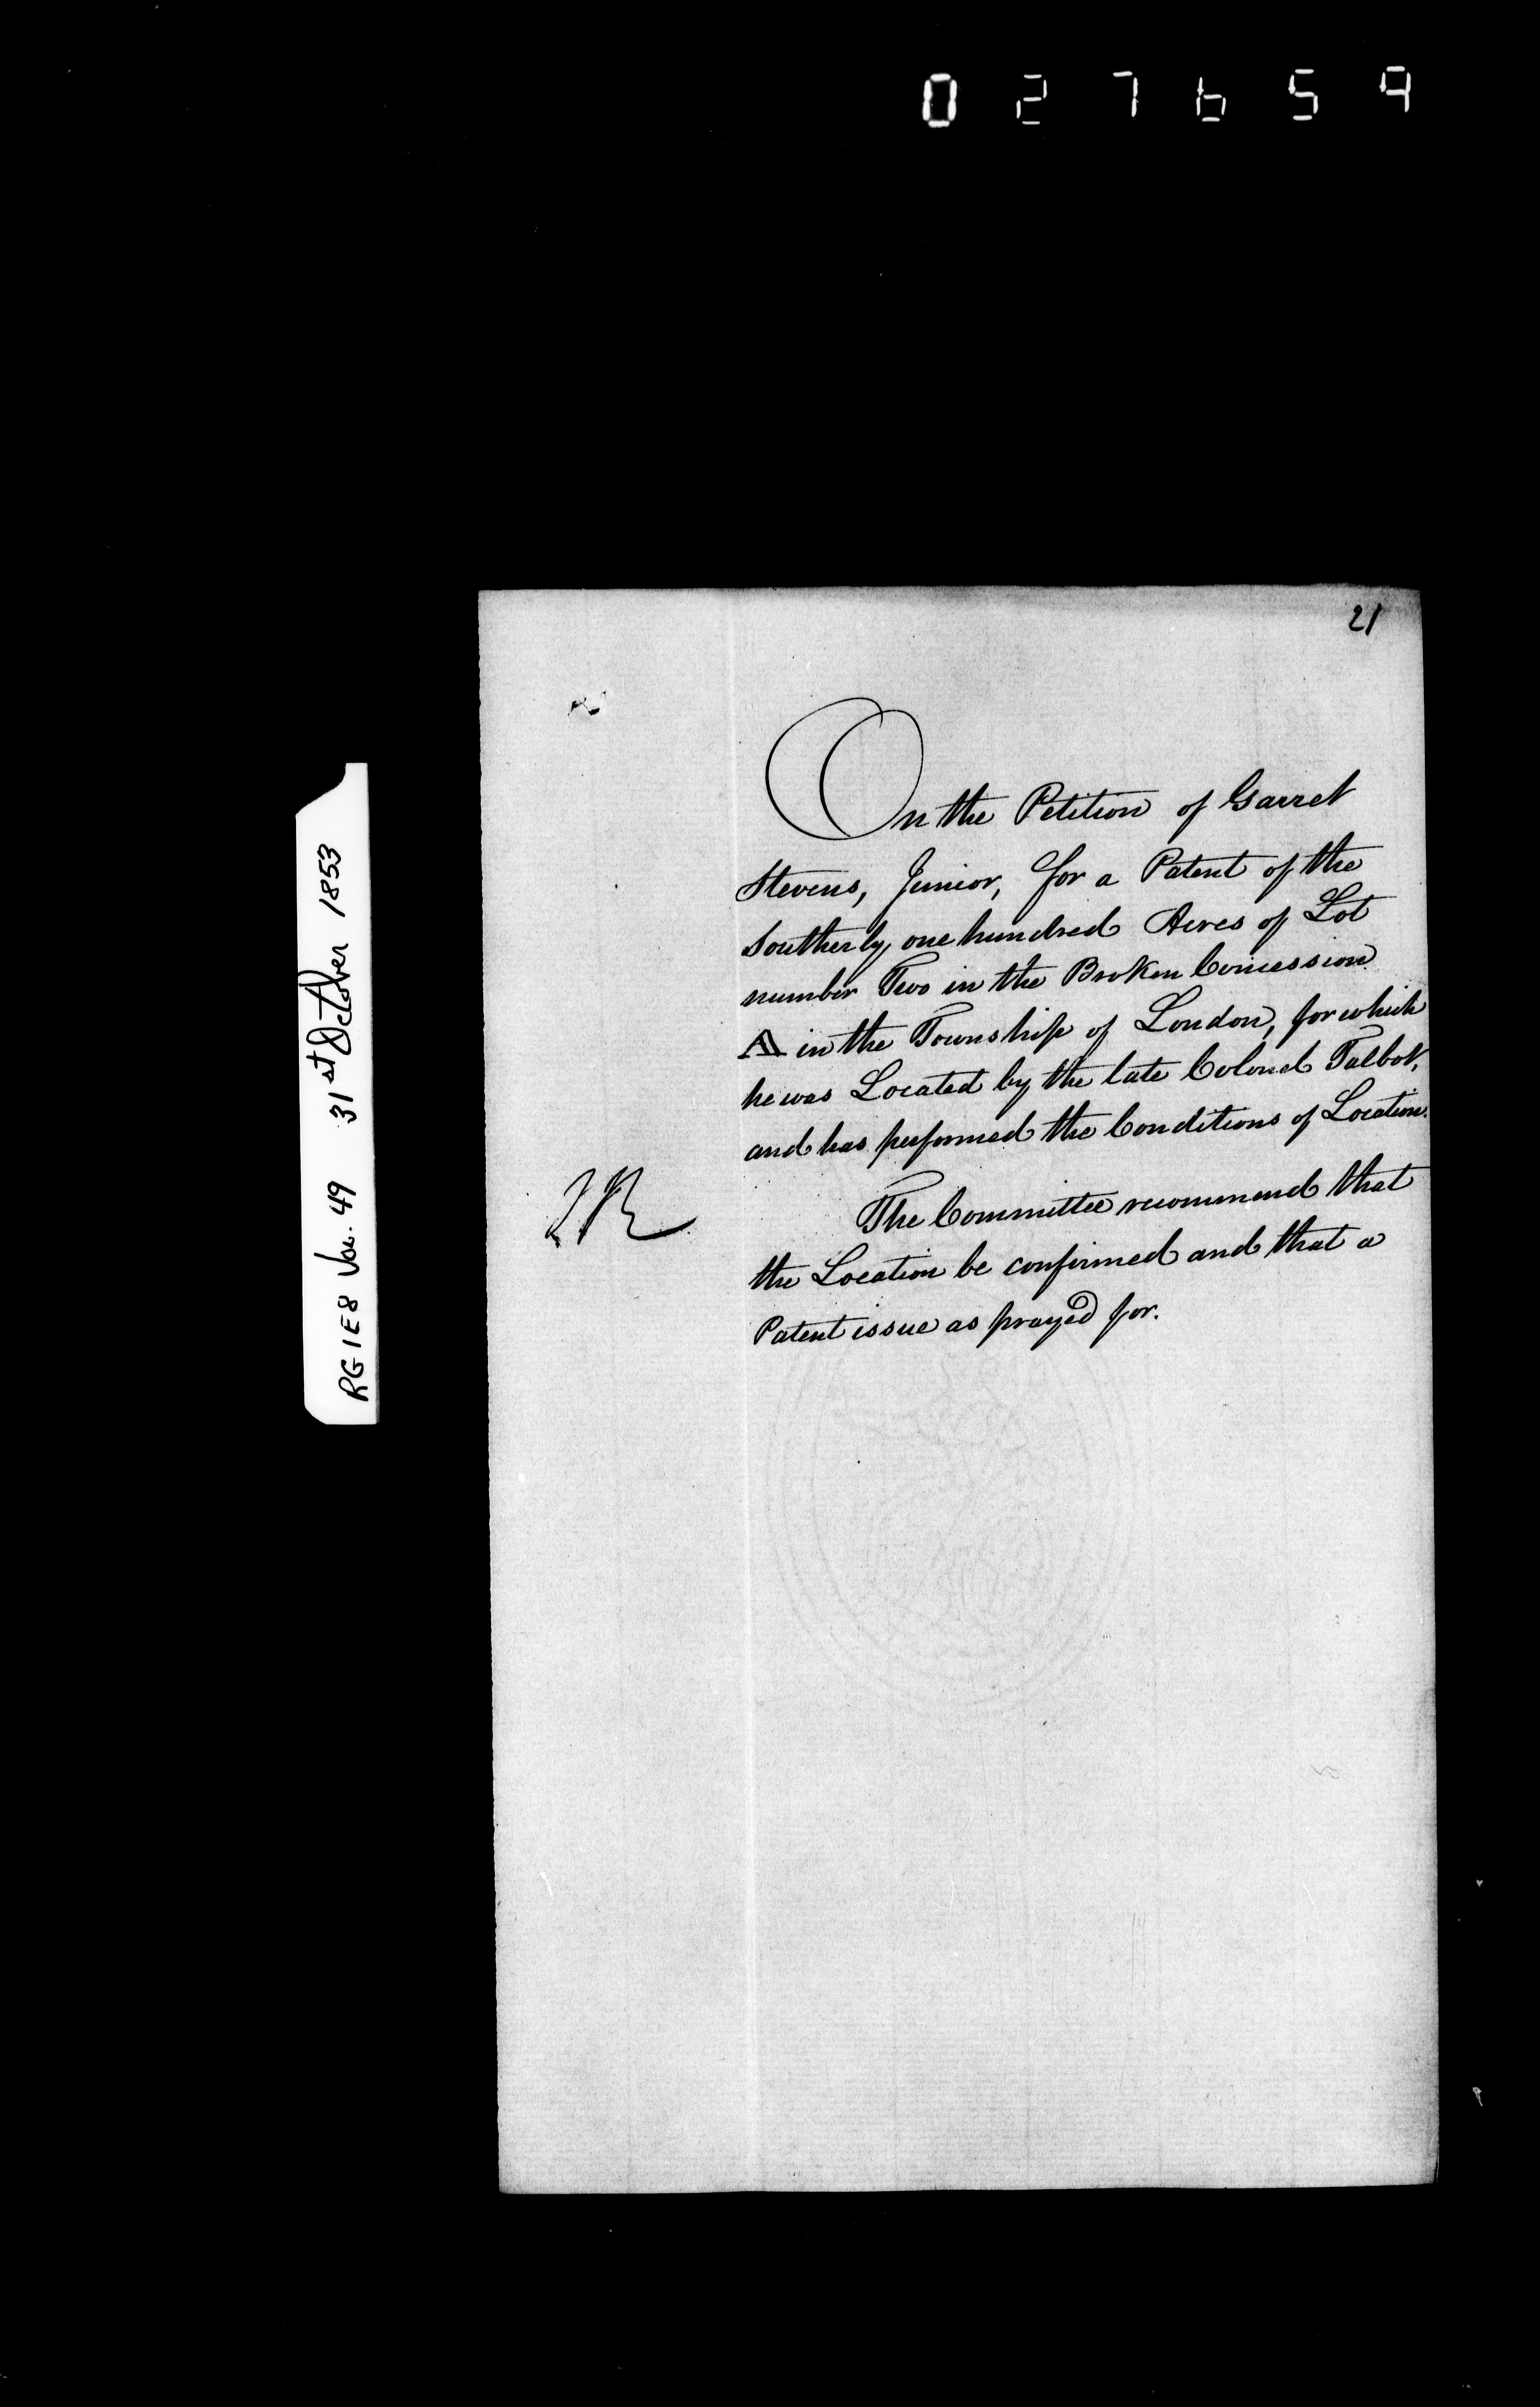 027659
21
On the Petition of Garret
Stevens, Junior, for a Patent of the
Southerly one hundred Acres of Lot
number Two in the Broken Concession
A in the Township of London, for which
he was Located by the late Colonel Talbot,
and has performed the Conditions of Location.
The Committee recommend that
the Location be confirmed and that a
Patent issue as prayed for.
RG 1 E8 Vol. 49 31st October 1853